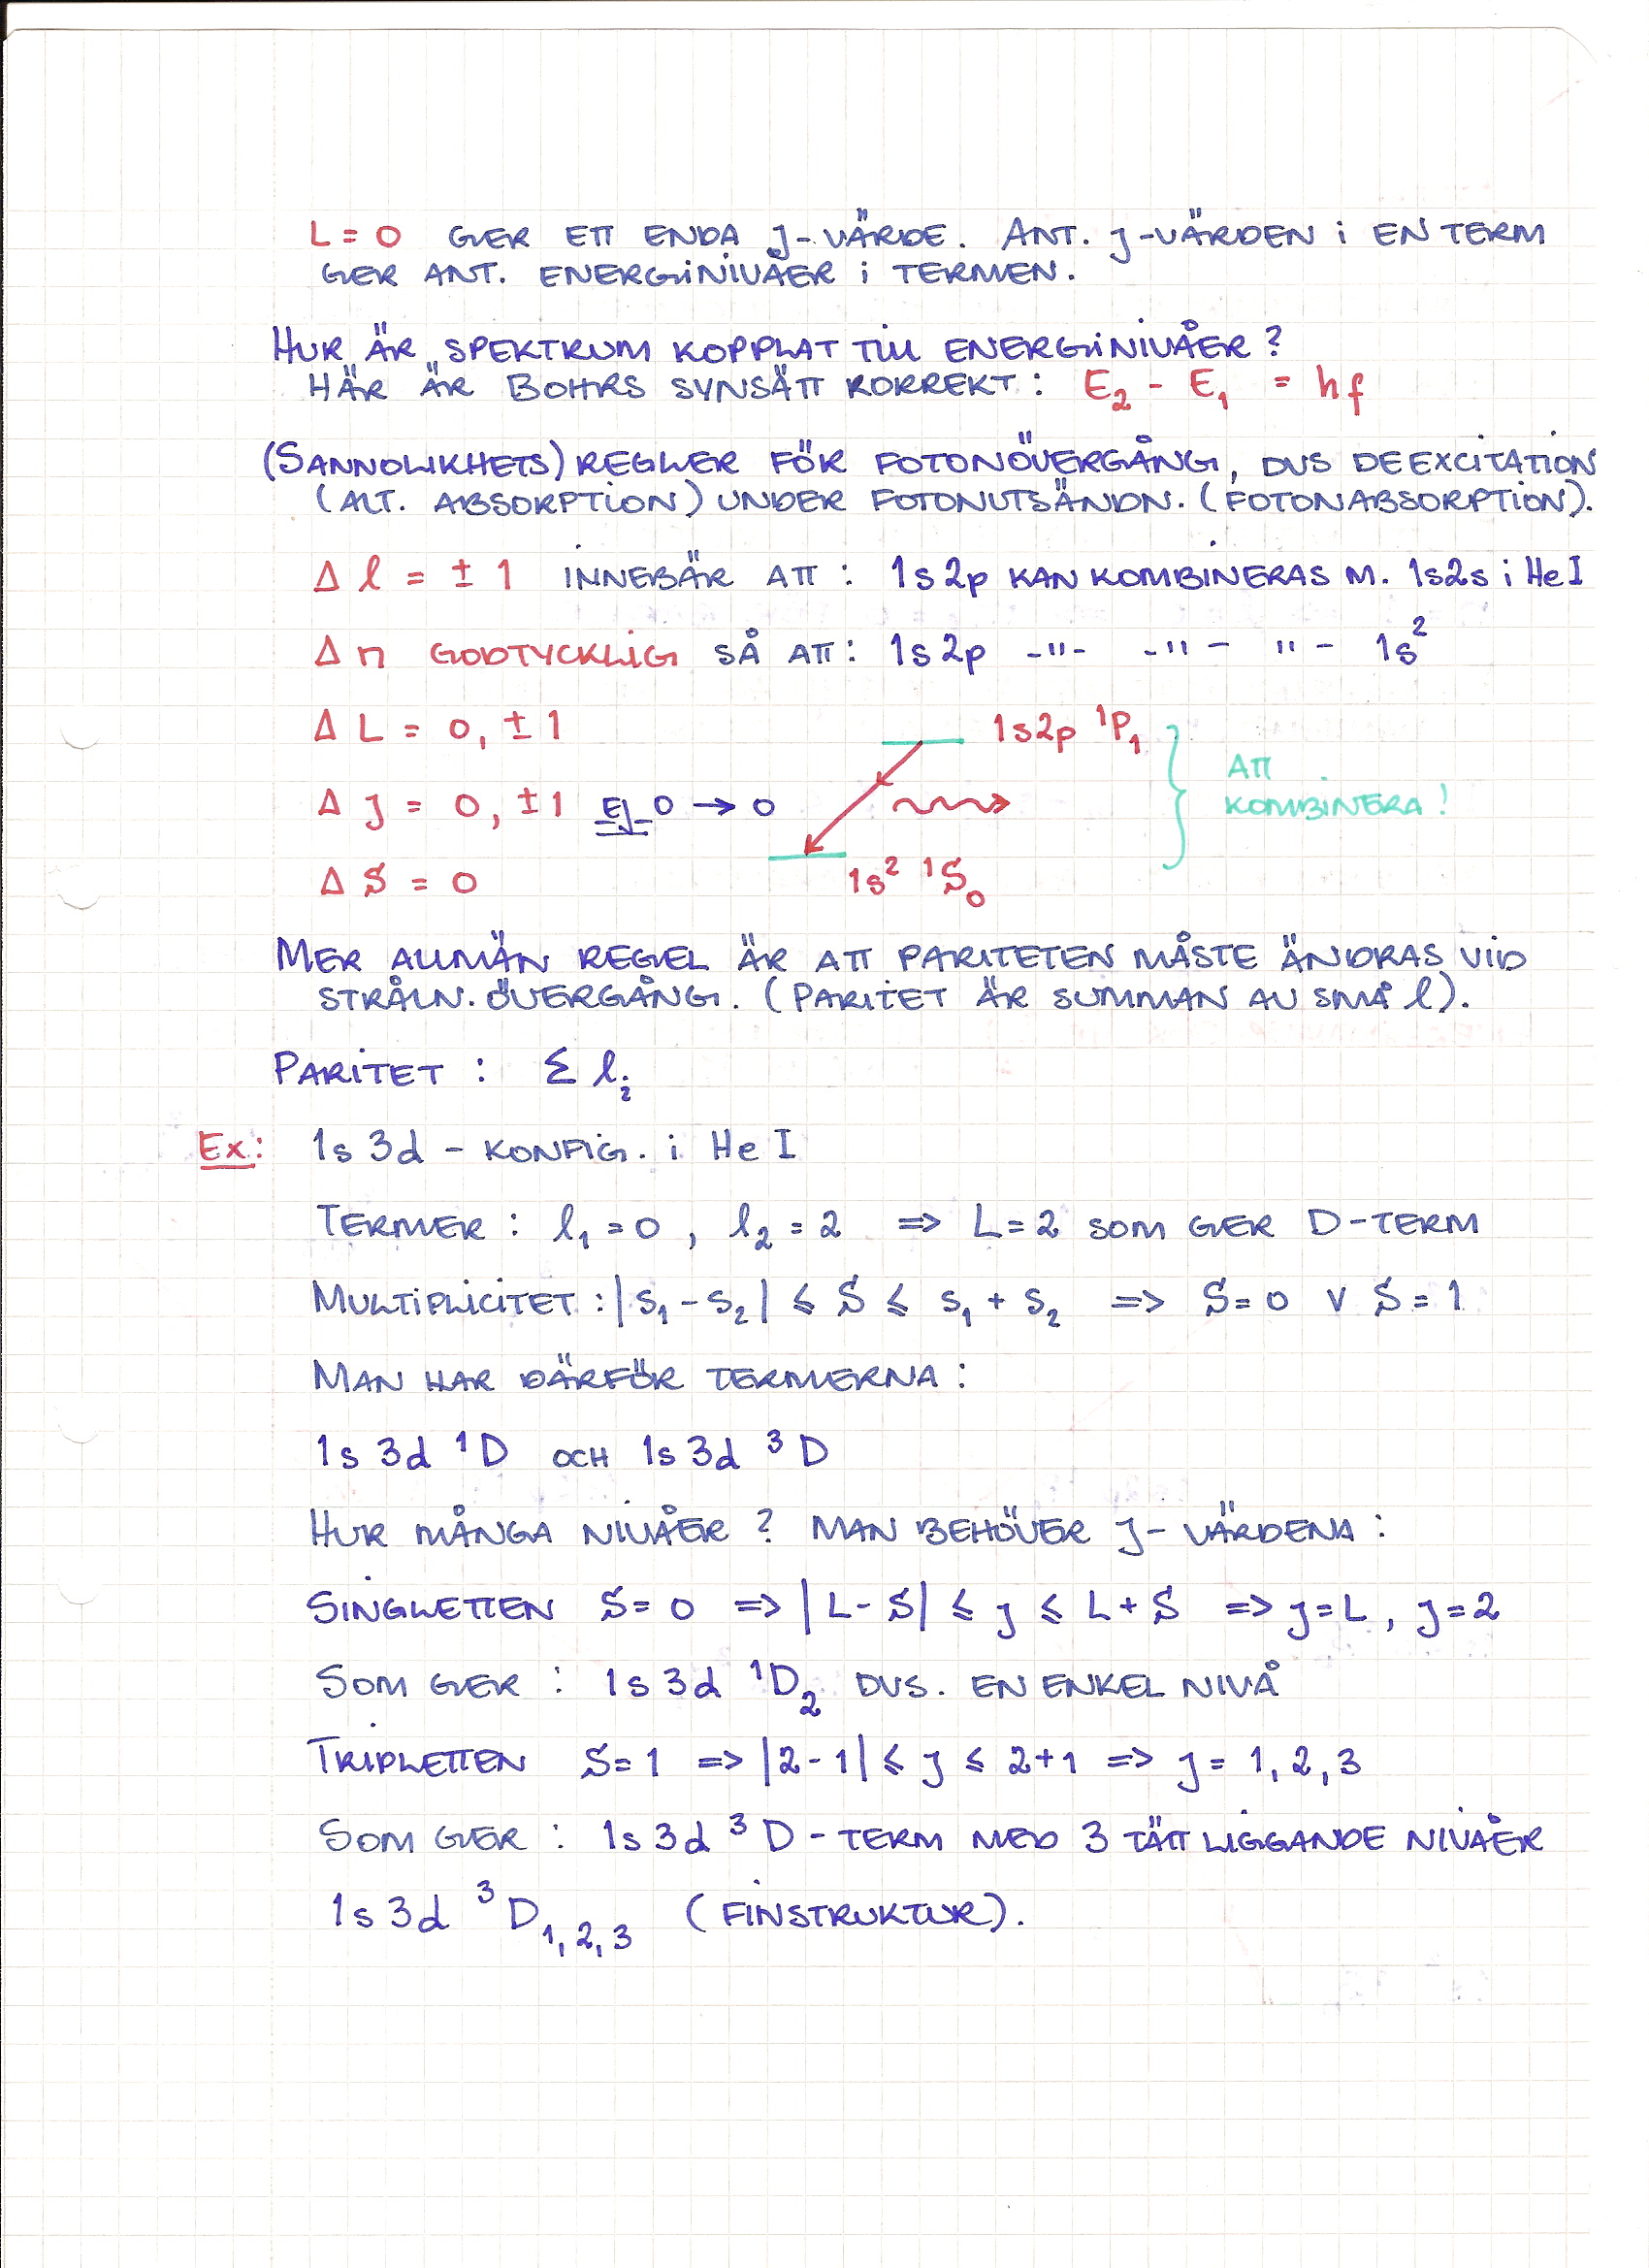 L = 0 GER ETT ENDA J-VÄRDE. ANT. J-VÄRDEN i EN TERM
GER ANT. ENERGINIVÅER i TERMEN.
HUR ÄR SPEKTRUM KOPPLAT TILL ENERGINIVÅER?
HÄR ÄR BOHRS SYNSÄTT KORREKT: E₂ - E₁ = hf
(SANNOLIKHETS) REGLER FÖR FOTONÖVERGÅNG, DVS DEEXCITATION
(ALT. ABSORPTION) UNDER FOTONUTSÄNDN. (FOTONABSORPTION).
Δ l = ± 1 INNEBÄR ATT: 1s2p KAN KOMBINERAS M. 1s2s i He I
Δ n GODTYCKLIG SÅ ATT: 1s2p -"- -"- "- 1s²
Δ L = 0, ± 1
1s2p ¹P₁
ATT
KOMBINERA!
Δ J = 0, ± 1 EJ 0 → 0
Δ S = 0
1s² ¹S₀
MER ALLMÄN REGEL ÄR ATT PARITETEN MÅSTE ÄNDRAS VID
STRÅLN. ÖVERGÅNG. (PARITET ÄR SUMMAN AV SMÅ l).
PARITET: Σ lᵢ
Ex: 1s 3d - KONFIG. i He I
TERMER: l₁ = 0, l₂ = 2 => L = 2 SOM GER D-TERM
MULTIPLICITET: |s₁ - s₂| ≤ S ≤ s₁ + s₂ => S = 0 ∨ S = 1
MAN HAR DÄRFÖR TERMERNA:
1s 3d ¹D OCH 1s 3d ³D
HUR MÅNGA NIVÅER? MAN BEHÖVER J-VÄRDENA:
SINGLETTEN S = 0 => |L - S| ≤ J ≤ L + S => J = L, J = 2
SOM GER: 1s 3d ¹D₂ DVS. EN ENKEL NIVÅ
TRIPLETTEN S = 1 => |2 - 1| ≤ J ≤ 2 + 1 => J = 1, 2, 3
SOM GER: 1s 3d ³D - TERM MED 3 TÄTT LIGGANDE NIVÅER
1s 3d ³D₁,₂,₃ (FINSTRUKTUR).